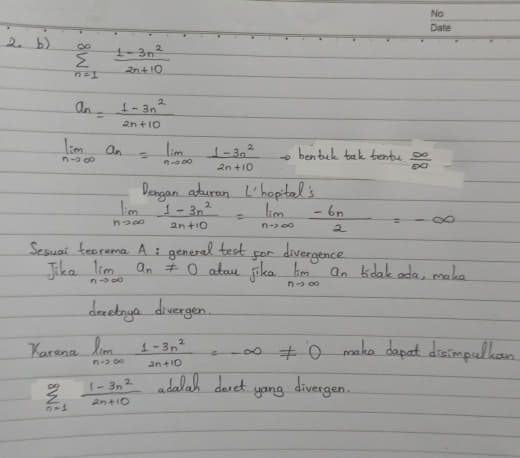 No
Date
2. b) ∞ Σ n=1 (1-3n²)/(2n+10)
an = (1-3n²)/(2n+10)
lim n→∞ an = lim n→∞ (1-3n²)/(2n+10) → bentuk tak tentu ∞/∞
Dengan aturan L'hopital's
lim n→∞ (1-3n²)/(2n+10) = lim n→∞ (-6n)/2 = -∞
Sesuai teorema A : general test for divergence
Jika lim n→∞ an ≠ 0 atau jika lim n→∞ an tidak ada, maka
deretnya divergen.
Karena lim n→∞ (1-3n²)/(2n+10) = -∞ ≠ 0 maka dapat disimpulkan
∞ Σ n=1 (1-3n²)/(2n+10) adalah deret yang divergen.